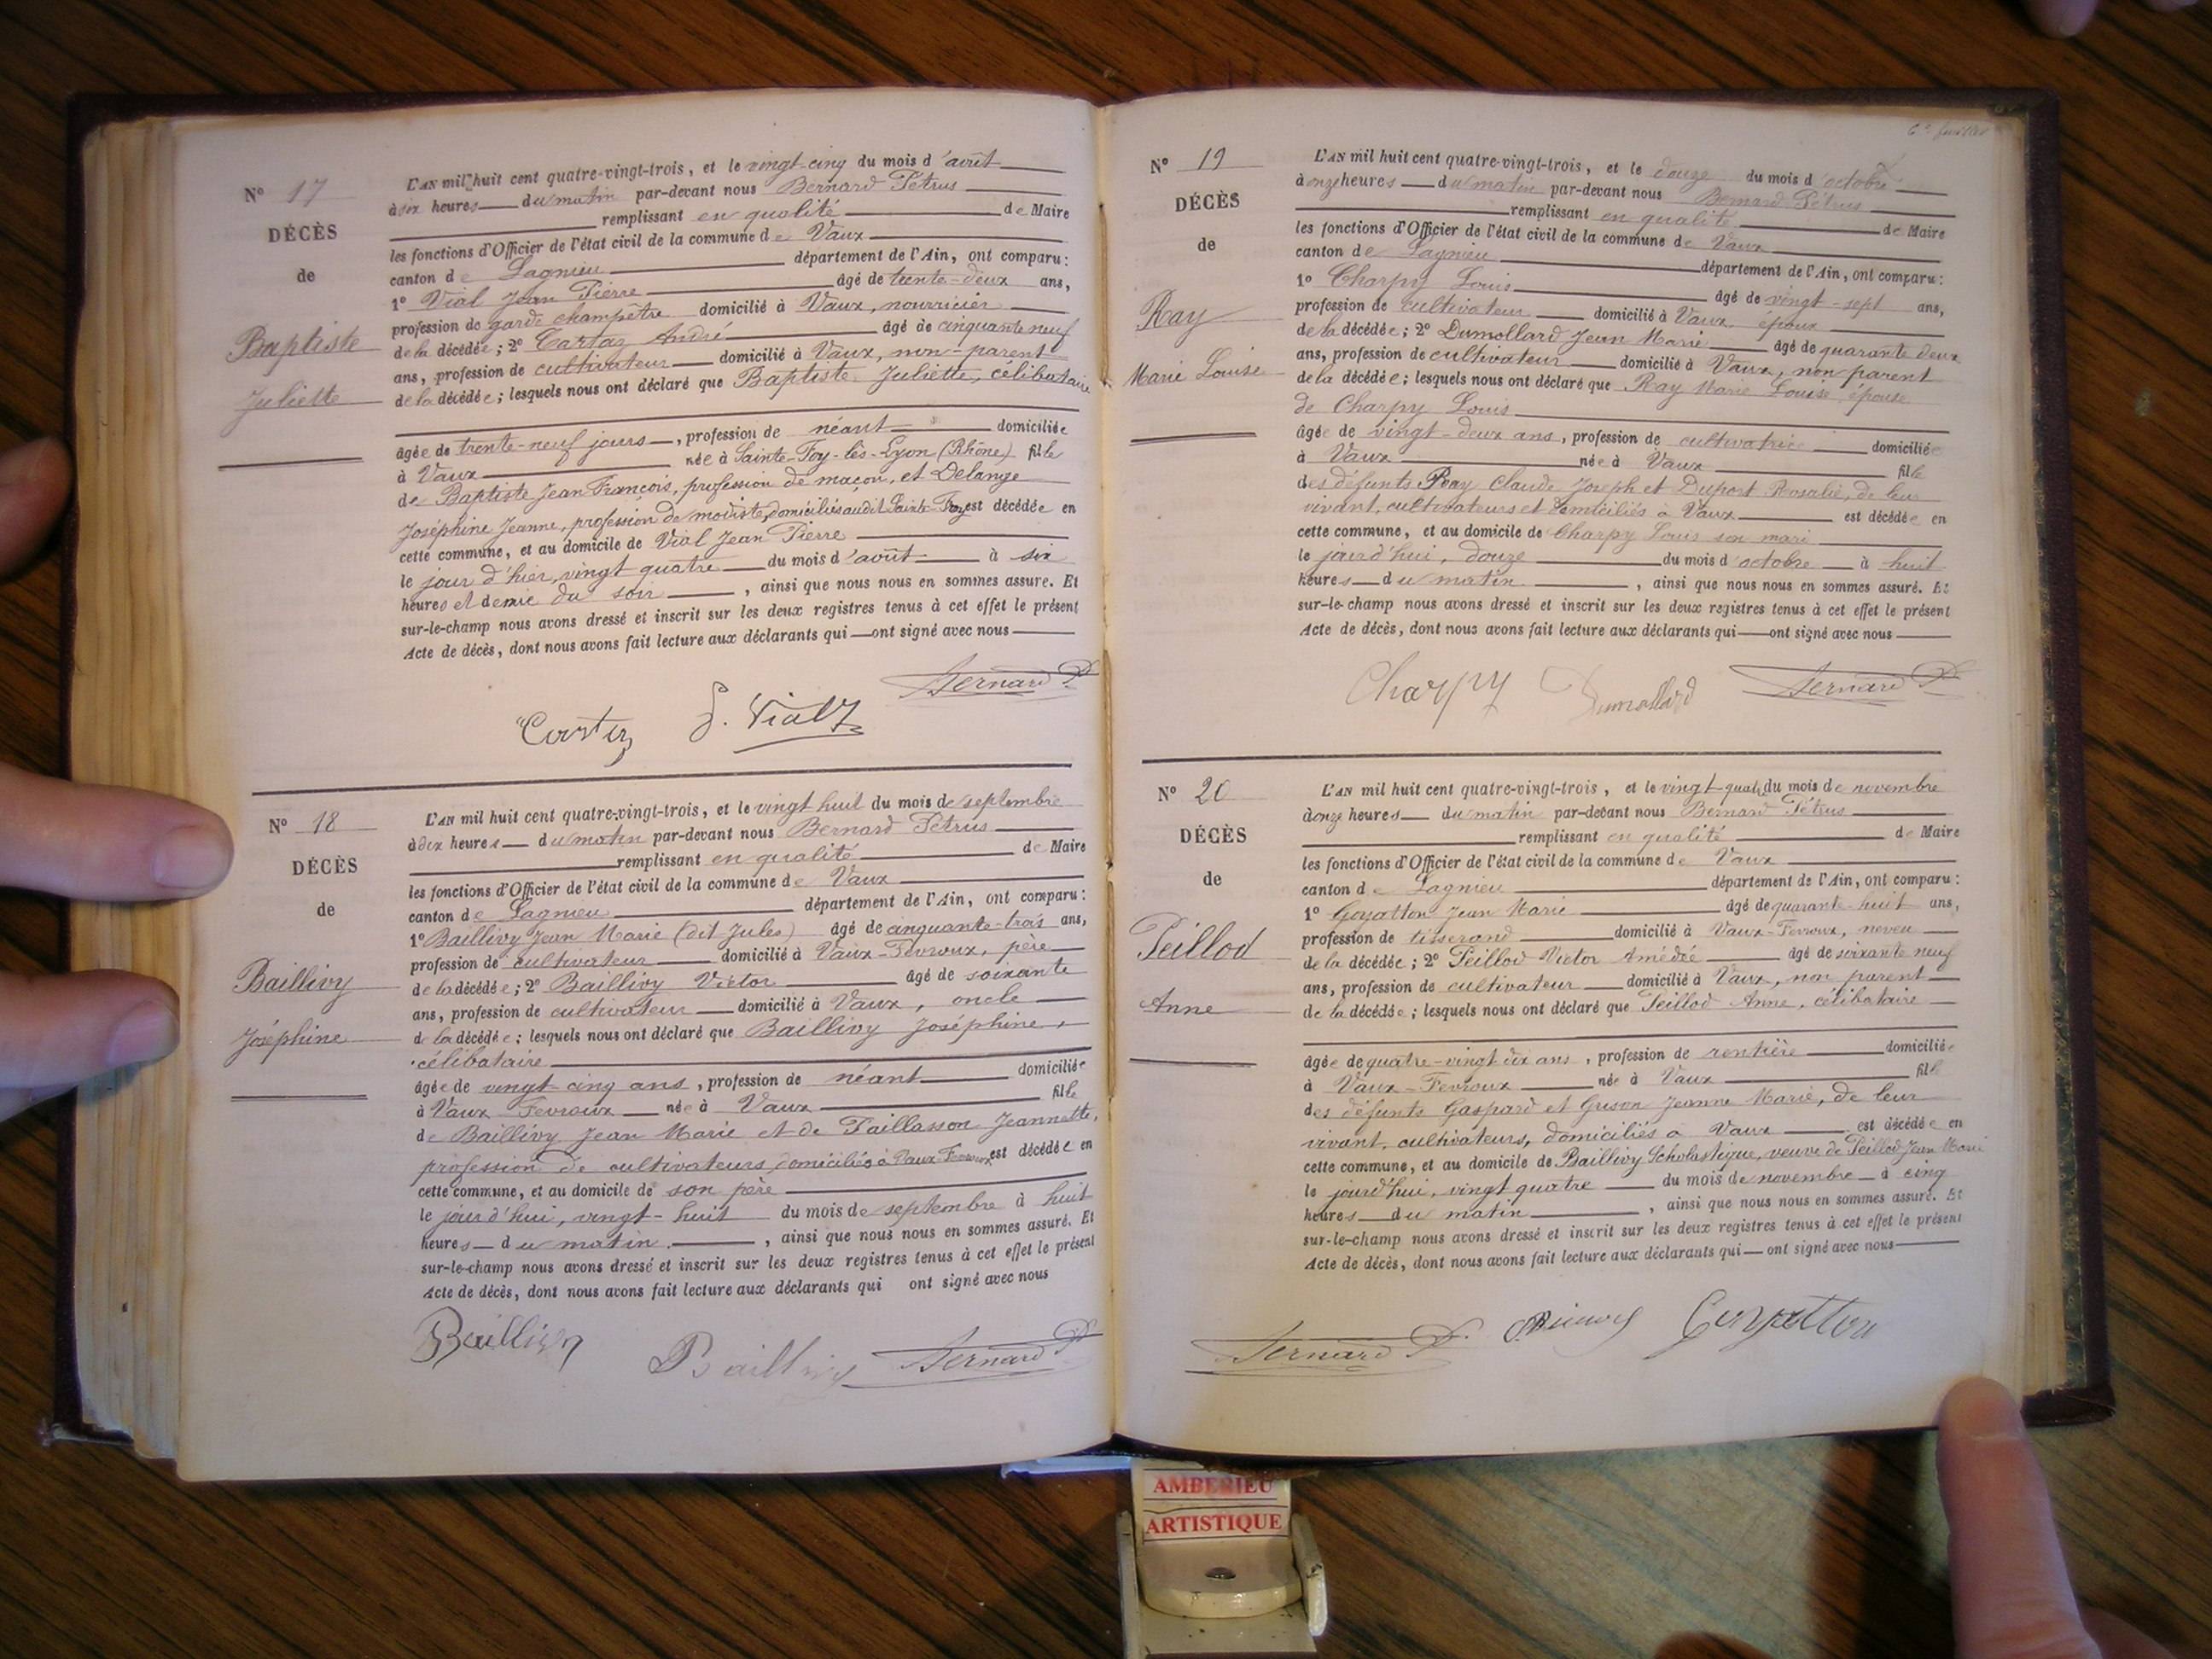 N° 17
DÉCÈS
de
Baptiste
Juliette
L'AN mil huit cent quatre-vingt-trois, et le vingt-cinq du mois d'août
à six heures du matin par-devant nous Bernard Pétrus
remplissant en qualité de Maire
les fonctions d'Officier de l'état civil de la commune de Vaux
canton de Lagnieu département de l'Ain, ont comparu :
1° Vial Jean Pierre âgé de trente-deux ans,
profession de garde champêtre domicilié à Vaux, nourricier
de la décédée ; 2° Cartaz André âgé de cinquante neuf
ans, profession de cultivateur domicilié à Vaux, non-parent
de la décédée ; lesquels nous ont déclaré que Baptiste Juliette, célibataire
âgée de trente-neuf jours, profession de néant domiciliée
à Vaux née à Sainte-Foy-lès-Lyon (Rhône) fille
de Baptiste Jean François, profession de maçon, et Delange
Joséphine Jeanne, profession de modiste, domiciliés audit Sainte-Foy est décédée en
cette commune, et au domicile de Vial Jean Pierre
le jour d'hier, vingt quatre du mois d'août à six
heures et demie du soir, ainsi que nous nous en sommes assuré. Et
sur-le-champ nous avons dressé et inscrit sur les deux registres tenus à cet effet le présent
Acte de décès, dont nous avons fait lecture aux déclarants qui ont signé avec nous
Bernard P.
J. Vial
N° 18
DÉCÈS
de
Baillivy
Joséphine
L'AN mil huit cent quatre-vingt-trois, et le vingt huit du mois de septembre
à dix heures du matin par-devant nous Bernard Pétrus
remplissant en qualité de Maire
les fonctions d'Officier de l'état civil de la commune de Vaux
canton de Lagnieu département de l'Ain, ont comparu :
1° Baillivy Jean Marie (dit Jules) âgé de cinquante-trois ans,
profession de cultivateur domicilié à Vaux-Févroux, père
de la décédée ; 2° Baillivy Victor âgé de soixante
ans, profession de cultivateur domicilié à Vaux, oncle
de la décédée ; lesquels nous ont déclaré que Baillivy Joséphine,
célibataire
âgée de vingt cinq ans, profession de néant domiciliée
à Vaux Fevroux née à Vaux fille
de Baillivy Jean Marie et de Paillasson Jeannette,
profession de cultivateurs domiciliés à Vaux-Fevroux est décédée en
cette commune, et au domicile de son père
le jourd'hui, vingt-huit du mois de septembre à huit
heures du matin, ainsi que nous nous en sommes assuré. Et
sur-le-champ nous avons dressé et inscrit sur les deux registres tenus à cet effet le présent
Acte de décès, dont nous avons fait lecture aux déclarants qui ont signé avec nous
Baillivy
Baillivy
Bernard P.
N° 19
DÉCÈS
de
Ray
Marie Louise
L'AN mil huit cent quatre-vingt-trois, et le douze du mois d'octobre
à onze heures du matin par-devant nous Bernard Pétrus
remplissant en qualité de Maire
les fonctions d'Officier de l'état civil de la commune de Vaux
canton de Lagnieu département de l'Ain, ont comparu :
1° Charpy Louis âgé de vingt-sept ans,
profession de cultivateur domicilié à Vaux époux
de la décédée ; 2° Dumollard Jean Marie âgé de quarante deux
ans, profession de cultivateur domicilié à Vaux, non parent
de la décédée ; lesquels nous ont déclaré que Ray Marie Louise épouse
de Charpy Louis
âgée de vingt-deux ans, profession de cultivatrice domiciliée
à Vaux née à Vaux fille
des défunts Ray Claude Joseph et Duport Rosalie, de leur
vivant, cultivateurs et domiciliés à Vaux est décédée en
cette commune, et au domicile de Charpy Louis son mari
le jourd'hui, douze du mois d'octobre à huit
heures du matin, ainsi que nous nous en sommes assuré. Et
sur-le-champ nous avons dressé et inscrit sur les deux registres tenus à cet effet le présent
Acte de décès, dont nous avons fait lecture aux déclarants qui ont signé avec nous
Charpy
Dumollard
Bernard P.
N° 20
DÉCÈS
de
Peillod
Anne
L'AN mil huit cent quatre-vingt-trois, et le vingt-quatre du mois de novembre
à onze heures du matin par-devant nous Bernard Pétrus
remplissant en qualité de Maire
les fonctions d'Officier de l'état civil de la commune de Vaux
canton de Lagnieu département de l'Ain, ont comparu :
1° Goyatton Jean Marie âgé de quarante-huit ans,
profession de tisserand domicilié à Vaux-Fevroux, neveu
de la décédée ; 2° Peillod Victor Amédée âgé de soixante neuf
ans, profession de cultivateur domicilié à Vaux, non parent
de la décédée ; lesquels nous ont déclaré que Peillod Anne, célibataire
âgée de quatre-vingt dix ans, profession de rentière domiciliée
à Vaux-Fevroux née à Vaux fille
des défunts Gaspard et Grison Jeanne Marie, de leur
vivant, cultivateurs, domiciliés à Vaux est décédée en
cette commune, et au domicile de Baillivy Scholastique, veuve de Peillod Jean Marie
le jourd'hui, vingt quatre du mois de novembre à cinq
heures du matin, ainsi que nous nous en sommes assuré. Et
sur-le-champ nous avons dressé et inscrit sur les deux registres tenus à cet effet le présent
Acte de décès, dont nous avons fait lecture aux déclarants qui ont signé avec nous
Bernard P.
Goyatton
AMBERIEU
ARTISTIQUE